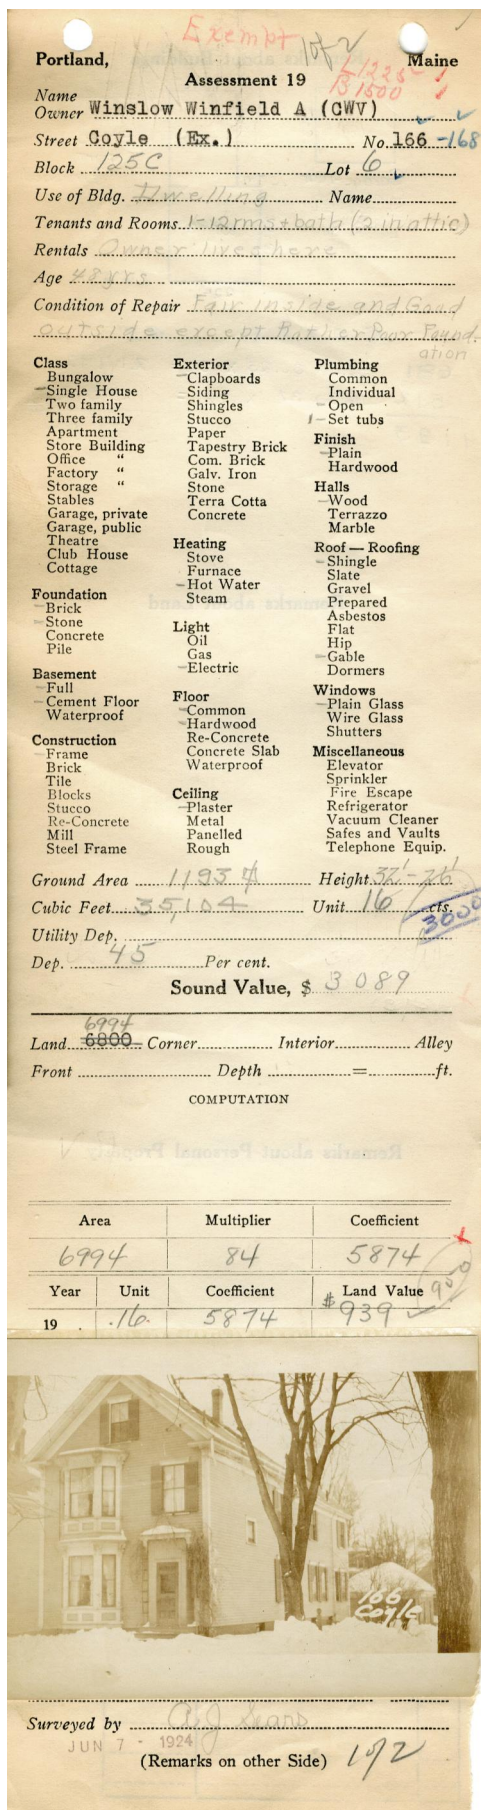 Exempt 1 of 2
Portland, Maine
L 1225
Assessment 19
B 1500
Name
Owner Winslow Winfield A (CWV)
Street Coyle (Ex.) No. 166 -168
Block 125C Lot 6
Use of Bldg. Dwelling Name
Tenants and Rooms 1-12rms+bath (2 in attic)
Rentals Owner lives here
Age 48 yrs
Condition of Repair Fair inside and Good
outside except Rather Poor Found-
ation
Class
Bungalow
Single House
Two family
Three family
Apartment
Store Building
Office "
Factory "
Storage "
Stables
Garage, private
Garage, public
Theatre
Club House
Cottage
Foundation
Brick
Stone
Concrete
Pile
Basement
Full
Cement Floor
Waterproof
Construction
Frame
Brick
Tile
Blocks
Stucco
Re-Concrete
Mill
Steel Frame
Exterior
Clapboards
Siding
Shingles
Stucco
Paper
Tapestry Brick
Com. Brick
Galv. Iron
Stone
Terra Cotta
Concrete
Heating
Stove
Furnace
Hot Water
Steam
Light
Oil
Gas
Electric
Floor
Common
Hardwood
Re-Concrete
Concrete Slab
Waterproof
Ceiling
Plaster
Metal
Panelled
Rough
Plumbing
Common
Individual
Open
1 - Set tubs
Finish
Plain
Hardwood
Halls
Wood
Terrazzo
Marble
Roof — Roofing
Shingle
Slate
Gravel
Prepared
Asbestos
Flat
Hip
Gable
Dormers
Windows
Plain Glass
Wire Glass
Shutters
Miscellaneous
Elevator
Sprinkler
Fire Escape
Refrigerator
Vacuum Cleaner
Safes and Vaults
Telephone Equip.
Ground Area 1193 Height 32'-26'
Cubic Feet 35,104 Unit 16 cts.
3000
Utility Dep.
Dep. 45 Per cent.
Sound Value, $ 3089
6994
Land 6800 Corner Interior Alley
Front Depth = ft.
COMPUTATION
Area Multiplier Coefficient
6994 84 5874
Year Unit Coefficient Land Value 900
19 .16 5874 $939
166
Coyle
Surveyed by A J Sears
JUN 7 - 1924
(Remarks on other Side) 1 of 2